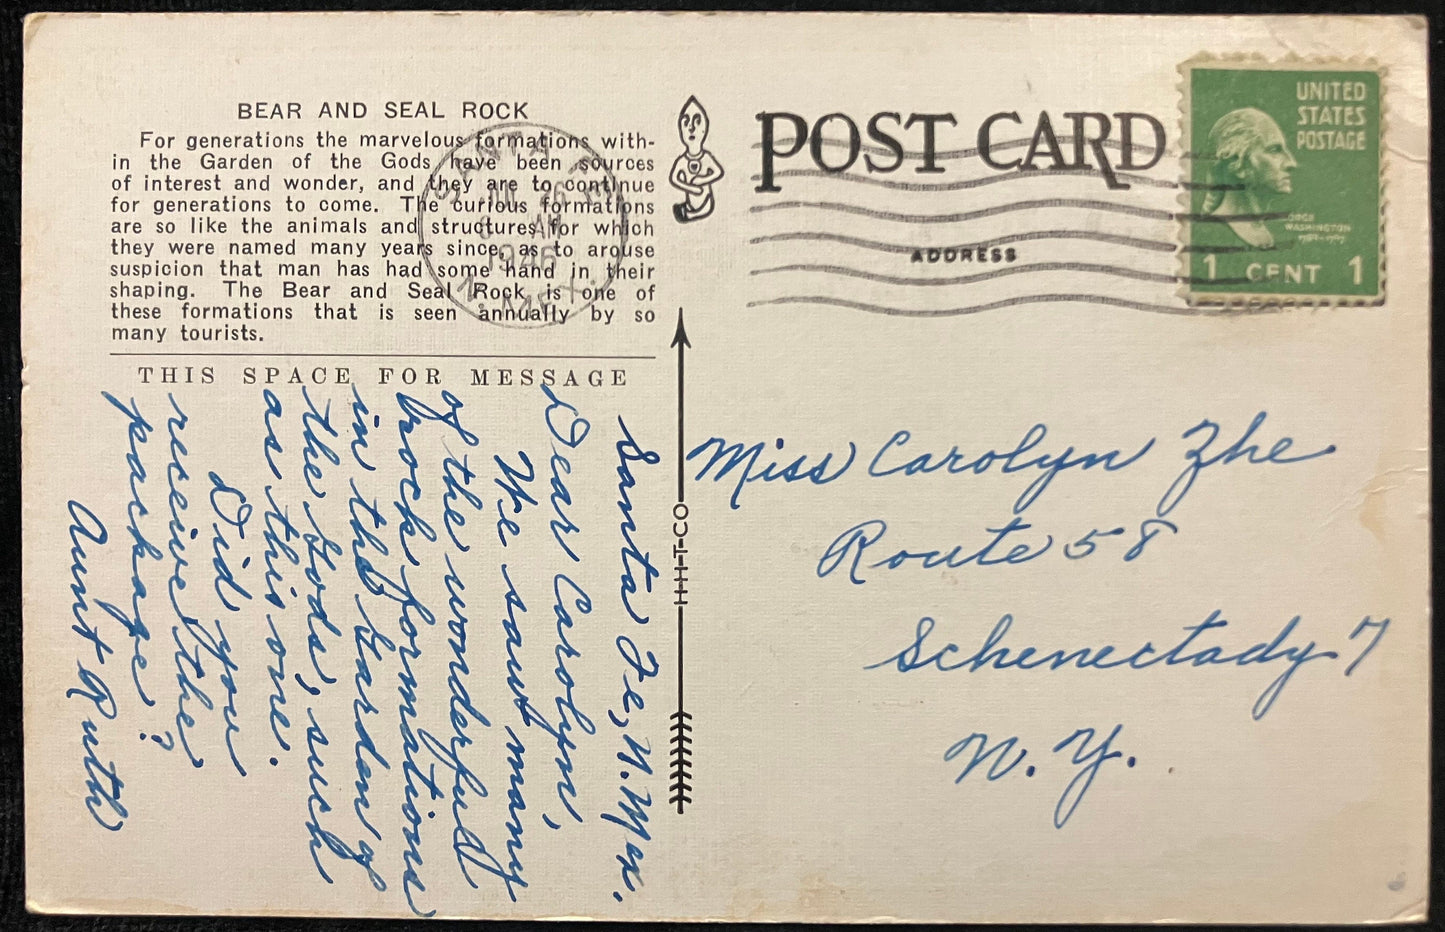 BEAR AND SEAL ROCK
For generations the marvelous formations with-
in the Garden of the Gods have been sources
of interest and wonder, and they are to continue
for generations to come. The curious formations
are so like the animals and structures for which
they were named many years since, as to arouse
suspicion that man has had some hand in their
shaping. The Bear and Seal Rock is one of
these formations that is seen annually by so
many tourists.
THIS SPACE FOR MESSAGE
Santa Fe, N. Mex.
Dear Carolyn,
We saw many
of the wonderful
rock formations
in the Garden of
the Gods, such
as this one.
Did you
receive the
package?
Aunt Ruth
SANTA FE
26
8 AM
1946
N. MEX.
H-H-T-CO
POST CARD
ADDRESS
UNITED
STATES
POSTAGE
GEORGE
WASHINGTON
1789-1797
1 CENT 1
Miss Carolyn Zhe
Route 58
Schenectady 7
N. Y.